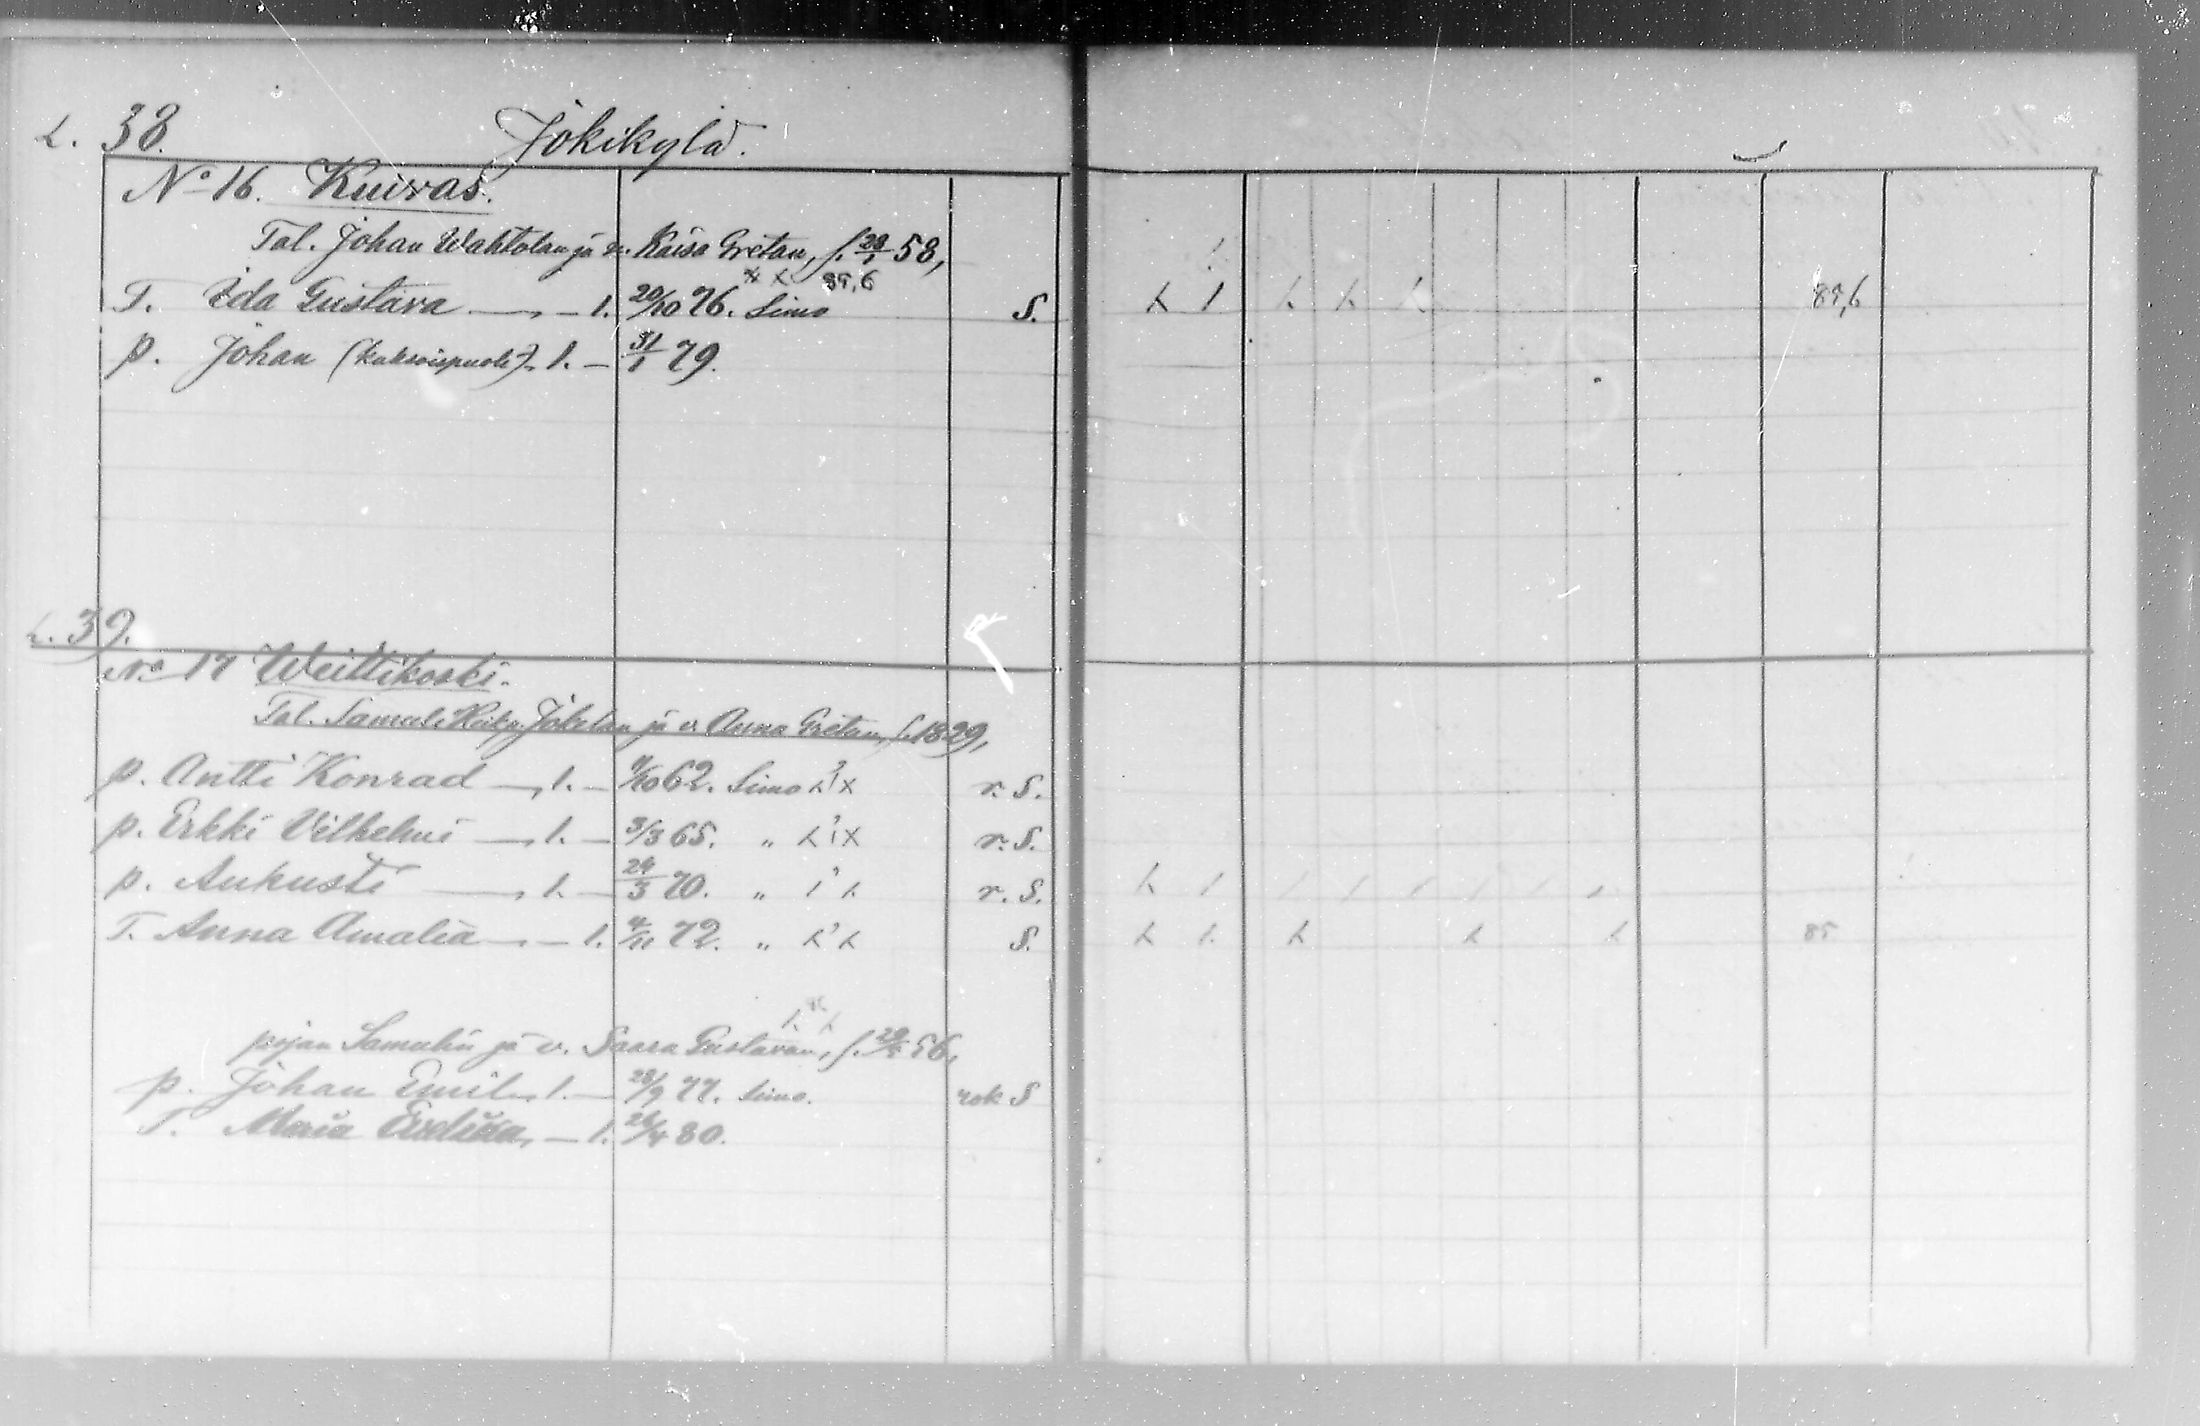 L. 38. Jokikylä.
No 16. Kuivas.
Tal. Johan Wahtolan ja v. Kaisa Gretan, s. 28/1 58,
T. Ida Gustava — l. 20/10 76. Simo x x 85,6 S. 85,6
p. Johan (kaksoispuoli) l. — 31/1 79.
L. 39.
No 17 Weittikoski.
Tal. Samuli Heikp. Jokelan ja v. Anna Gretan, s. 1829,
p. Antti Konrad — l. — /10 62. Simo r. S.
p. Erkki Vilhelmi — l. — 3/3 65. „ r. S.
p. Aukusti — l. — 24/3 70. „ r. S.
T. Anna Amalia — l. 4/11 72. „ S. 85
pojan Samulin ja v. Saara Gustavan, s. 56,
p. Johan Emil l. — 28/9 77. Simo. rok S
T. Maria — l. 26/4 80.